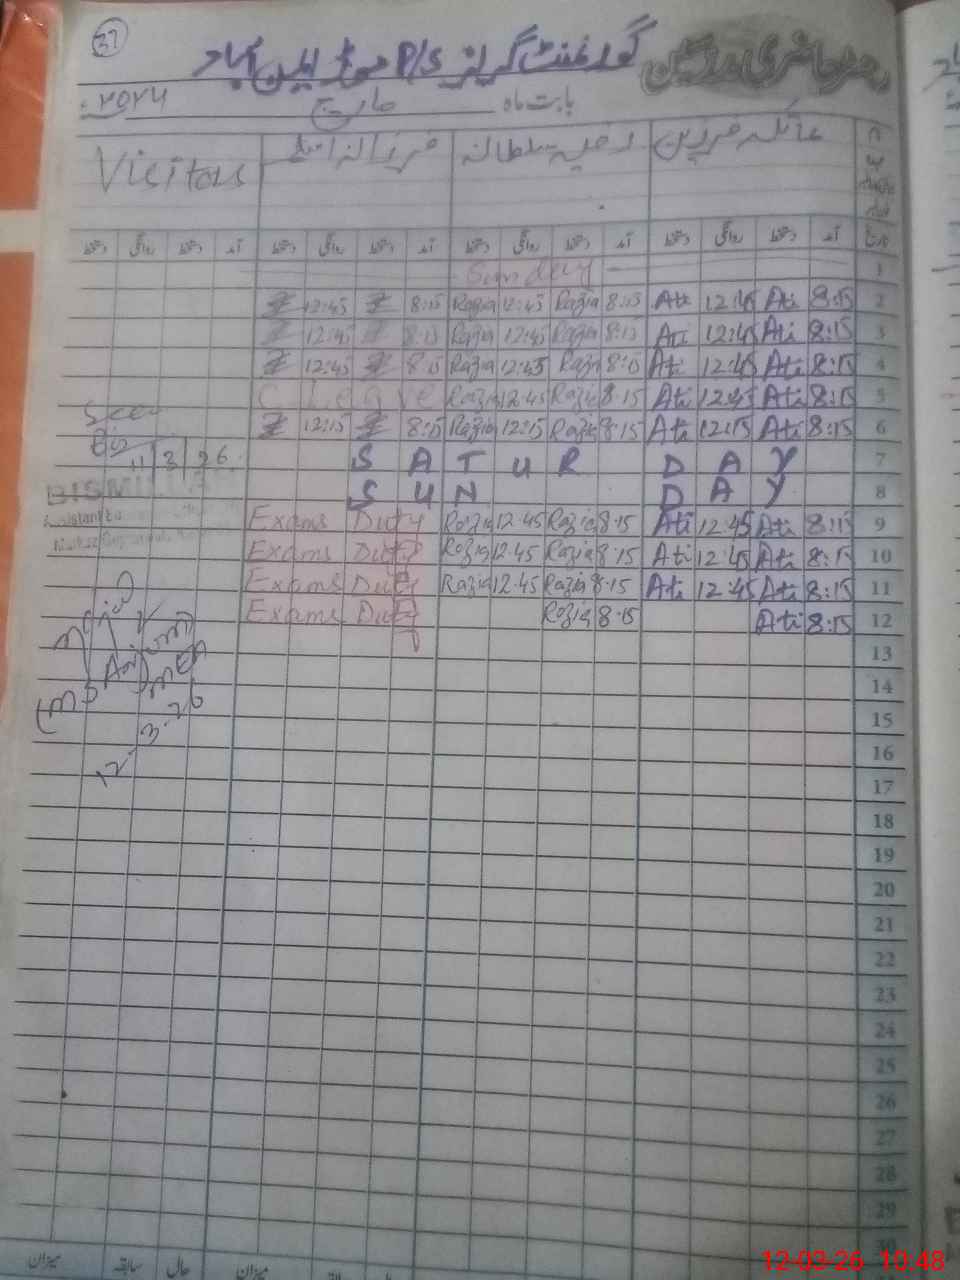 37
رجسٹر حاضری مدرسین گورنمنٹ گرلز P/S
بابت ماہ مارچ ۲۰۲۶
رضیہ سلطانہ Visitors
آمد دستخط روانگی دستخط آمد دستخط روانگی دستخط آمد دستخط روانگی دستخط آمد دستخط روانگی دستخط
1 Sunday
2 8:15 Ati 12:45 Ati 8:15 Razia 12:45 Razia 8:15 12:45
3 8:15 Ati 12:45 Ati 8:15 Razia 12:45 Razia 8:15 12:45
4 8:15 Ati 12:45 Ati 8:15 Razia 12:45 Razia 8:15 12:45
5 8:15 Ati 12:45 Ati 8:15 Razia 12:45 Razia C Leave
6 8:15 Ati 12:15 Ati 8:15 Razia 12:15 Razia 8:15 12:15
Seen
11 3 26
7 SATUR DAY
8 SUN DAY
BISMILLAH
9 8:15 Ati 12:45 Ati 8:15 Razia 12:45 Razia Exams Duty
10 8:15 Ati 12:45 Ati 8:15 Razia 12:45 Razia Exams Duty
11 8:15 Ati 12:45 Ati 8:15 Razia 12:45 Razia Exams Duty
12 8:15 Ati 8:15 Razia Exams Duty
13
14
MEA
15
12-3-26
16
17
18
19
20
21
22
23
24
25
26
27
28
29
30
میزان حال سابقہ میزان
12-03-26 10:48